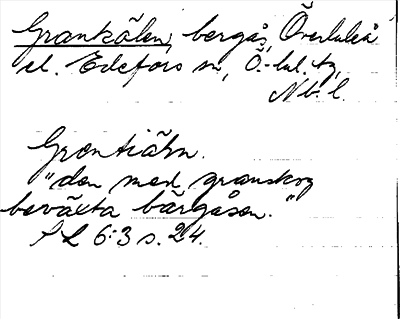 Grankölen, bergås, Överluleå
el. Edefors sn, Ö.-lul. tg,
Nb. l.
Grontiöln.
"den med granskog
beväxta bärgåsen."
SL 6:3 s. 24.